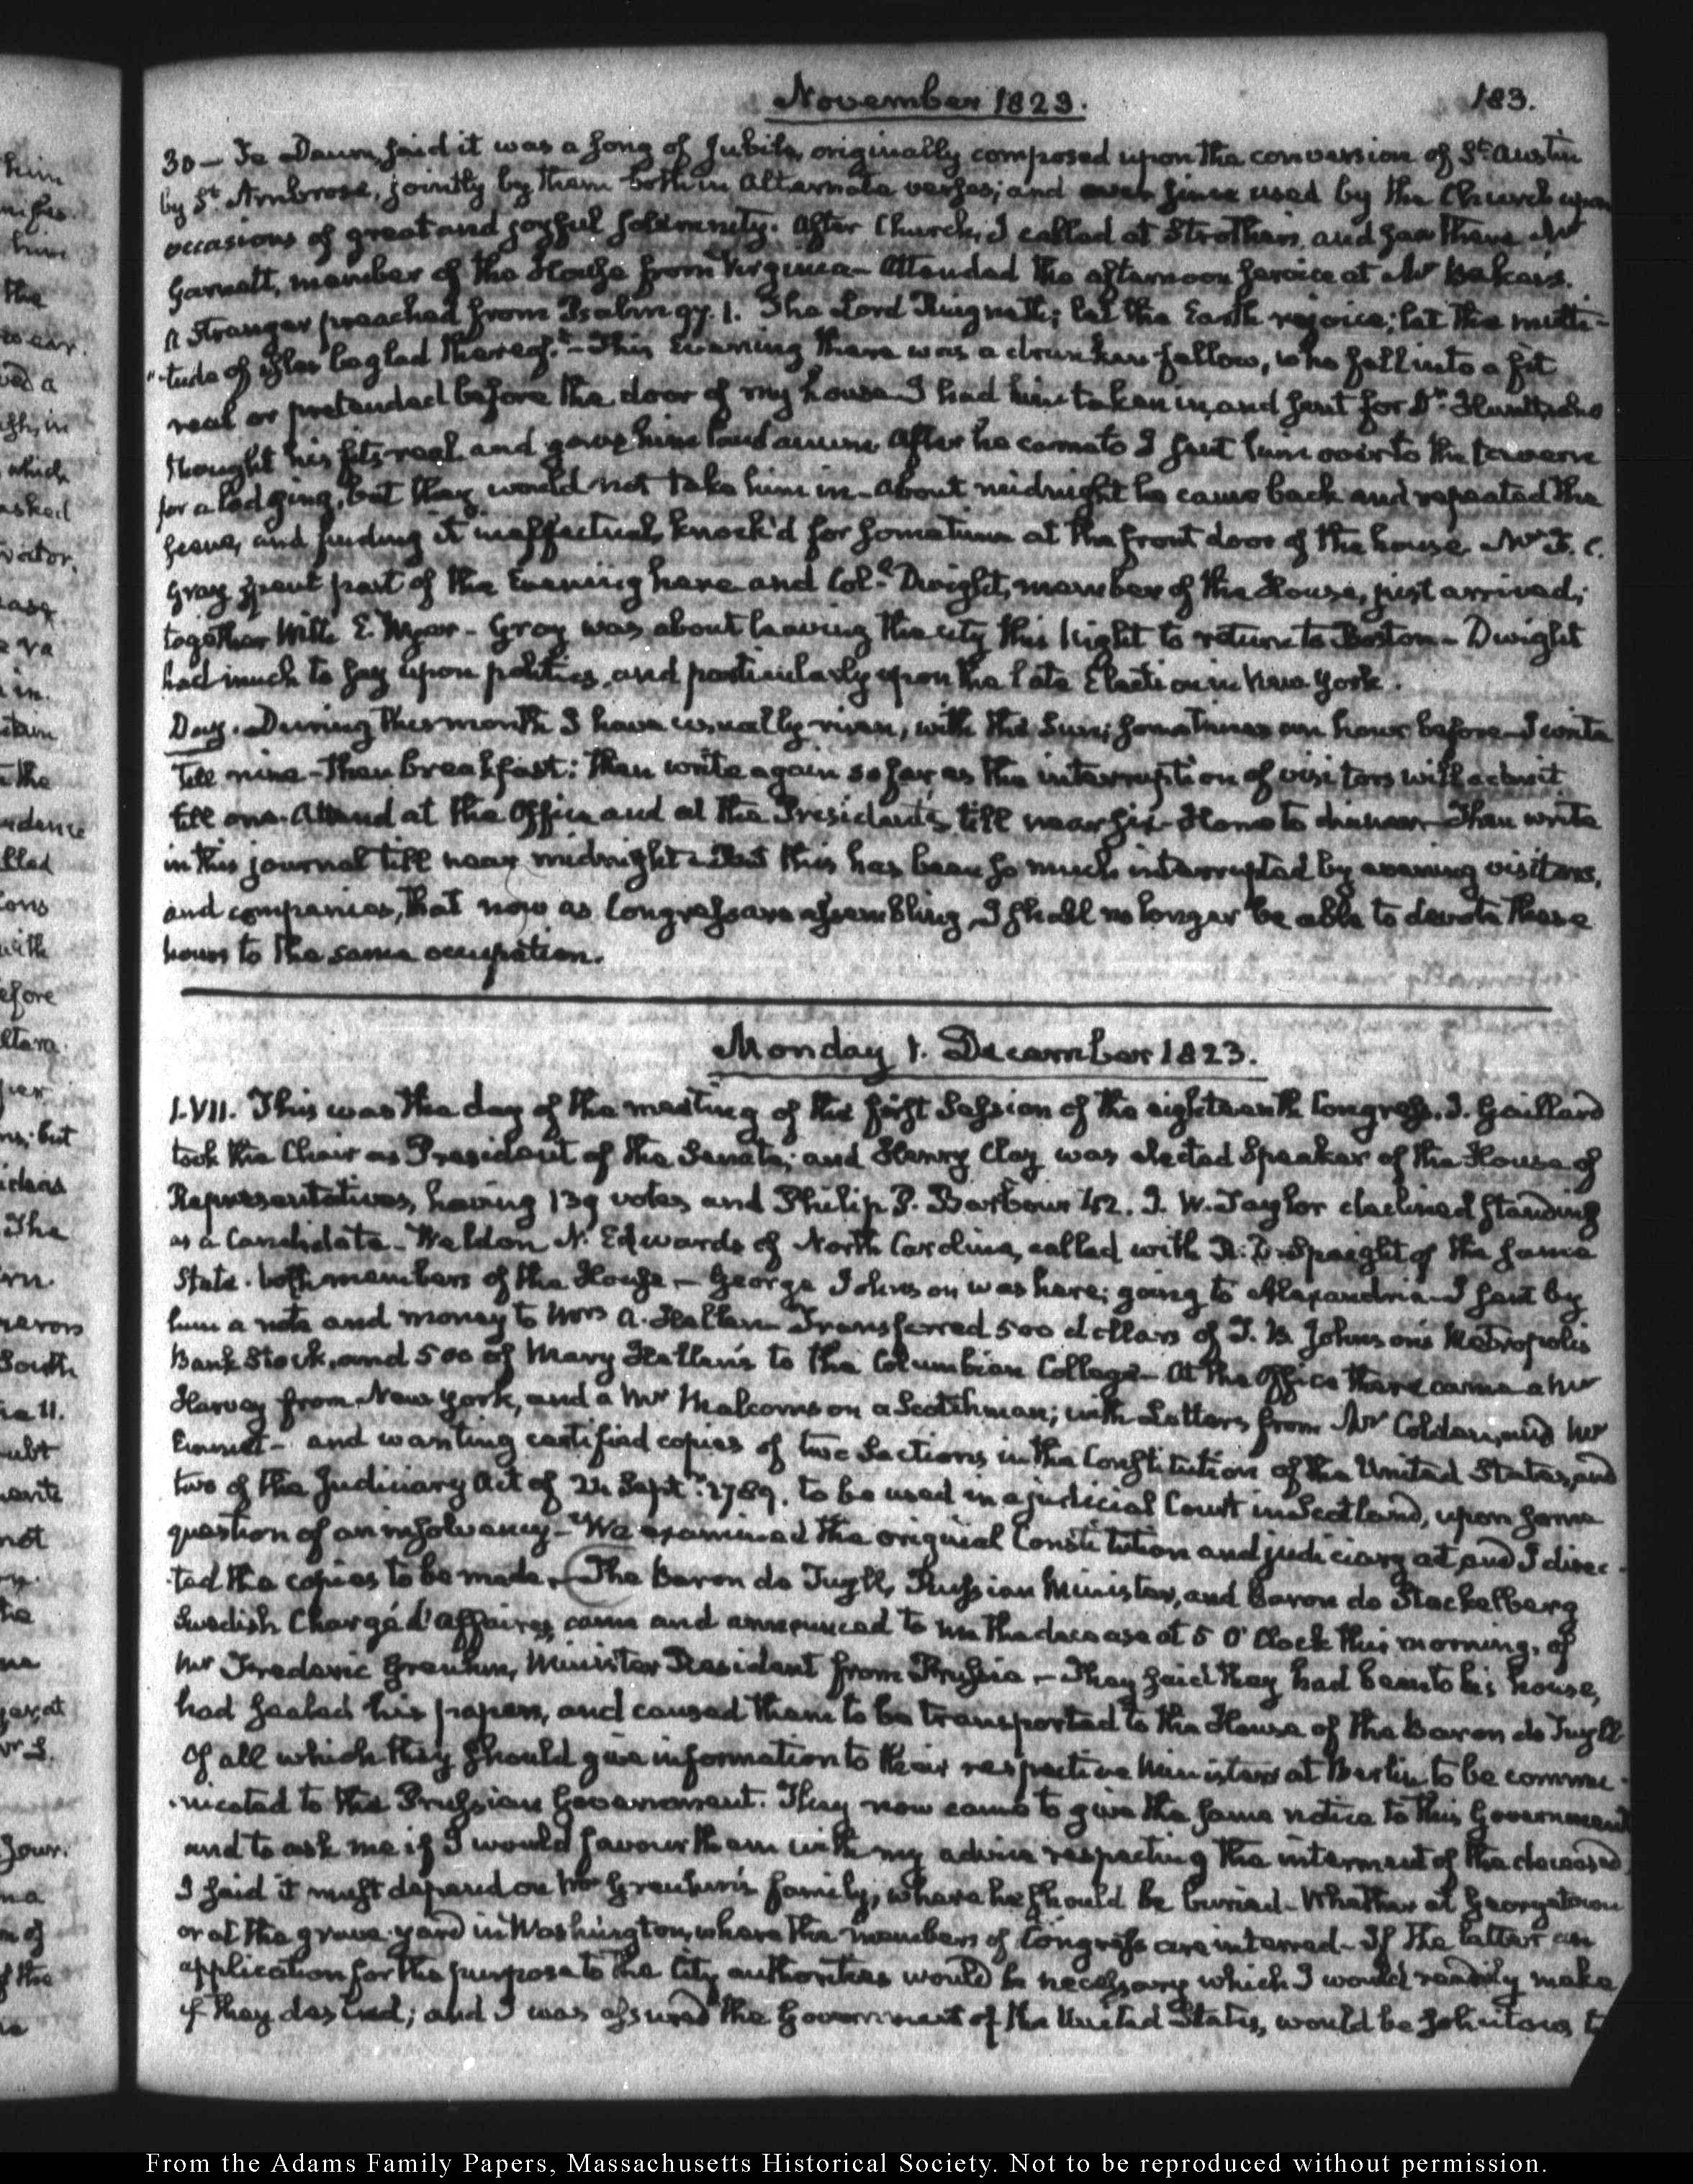 November 1823.
183.
30 — Te Deum, said it was a song of Jubile, originally composed upon the conversion of St. Austin
by St. Ambrose, jointly by them both in alternate verses; and ever since used by the Church upon
occasions of great and joyful solemnity. After Church, I called at Strother's, and saw there Mr
Garnett, member of the House from Virginia — Attended the afternoon service at Mr Baker's.
A Stranger preached from Psalm 97. 1. The Lord Reigneth; let the Earth rejoice; let the multi-
"tude of isles be glad thereof." — This Evening there was a drunken fellow, who fell into a fit
real or pretended before the door of my house I had him taken in, and sent for Dr. Huntt, who
thought his fits real and gave him laudanum After he came to I sent him over to the tavern
for a lodging, but they would not take him in — About midnight he came back and repeated the
scene, and finding it ineffectual, knock'd for sometime at the front door of the house. Mr F. C.
Gray spent part of the Evening here and Coll. Dwight, member of the House, just arrived;
together with E. Wyer — Gray was about leaving the city this Night to return to Boston — Dwight
had much to say upon politics, and particularly upon the late Election in New York.
Day. During this month I have usually risen, with the Sun; sometimes an hour before — I write
till nine — then breakfast: then write again so far as the interruption of visitors will admit
till one. Attend at the Office and at the President's, till near six — Home to dinner — Then write
in this journal till near midnight — But this has been so much interrupted by evening visitors,
and companies, that now as Congress are assembling, I shall no longer be able to devote these
hours to the same occupation.
Monday 1. December 1823.
I. VII. This was the day of the meeting of the first Session of the eighteenth Congress. J. Gaillard
took the Chair as President of the Senate; and Henry Clay was elected Speaker of the House of
Representatives, having 139 votes and Philip P. Barbour 42. J. W. Taylor declined standing
as a Candidate — Weldon N. Edwards of North Carolina, called with R. D. Spaight of the same
State. both members of the House — George Johnson was here; going to Alexandria — I sent by
him a note and money to Mrs A. Hellen — Transferred 500 dollars of T. B. Johnson's Metropolis
Bank Stock, and 500 of Mary Hellen's to the Columbian College — At the Office there came a Mr
Harvey from New York, and a Mr Malcomson a Scotchman; with Letters from Mr Colden, and Mr
Emmet — and wanting certified copies of two Sections in the Constitution of the United States, and
two of the Judiciary Act of 24 Septr. 1789. to be used in a judicial Court in Scotland, upon some
question of an insolvency — We examined the original Constitution and judiciary act, and I direc-
-ted the copies to be made — The Baron de Tuyll, Russian Minister, and Baron de Stackelberg
Swedish Chargé d'affaires, came and announced to me the decease at 5 O'Clock this morning, of
Mr Frederic Greuhm, Minister Resident from Prussia — They said they had been to his house,
had sealed his papers, and caused them to be transported to the House of the Baron de Tuyll.
Of all which they should give information to their respective Ministers at Berlin to be commu-
-nicated to the Prussian Government. They now came to give the same notice to this Government
and to ask me if I would favour them with my advice respecting the interment of the deceased.
I said it must depend on Mr Greuhm's family, where he should be buried — Whether at Georgetown
or at the grave-yard in Washington, where the members of Congress are interred — If the latter an
application for the purpose to the City authorities would be necessary which I would readily make
if they desired; and I was assured the Government of the United States, would be solicitous to
From the Adams Family Papers, Massachusetts Historical Society. Not to be reproduced without permission.